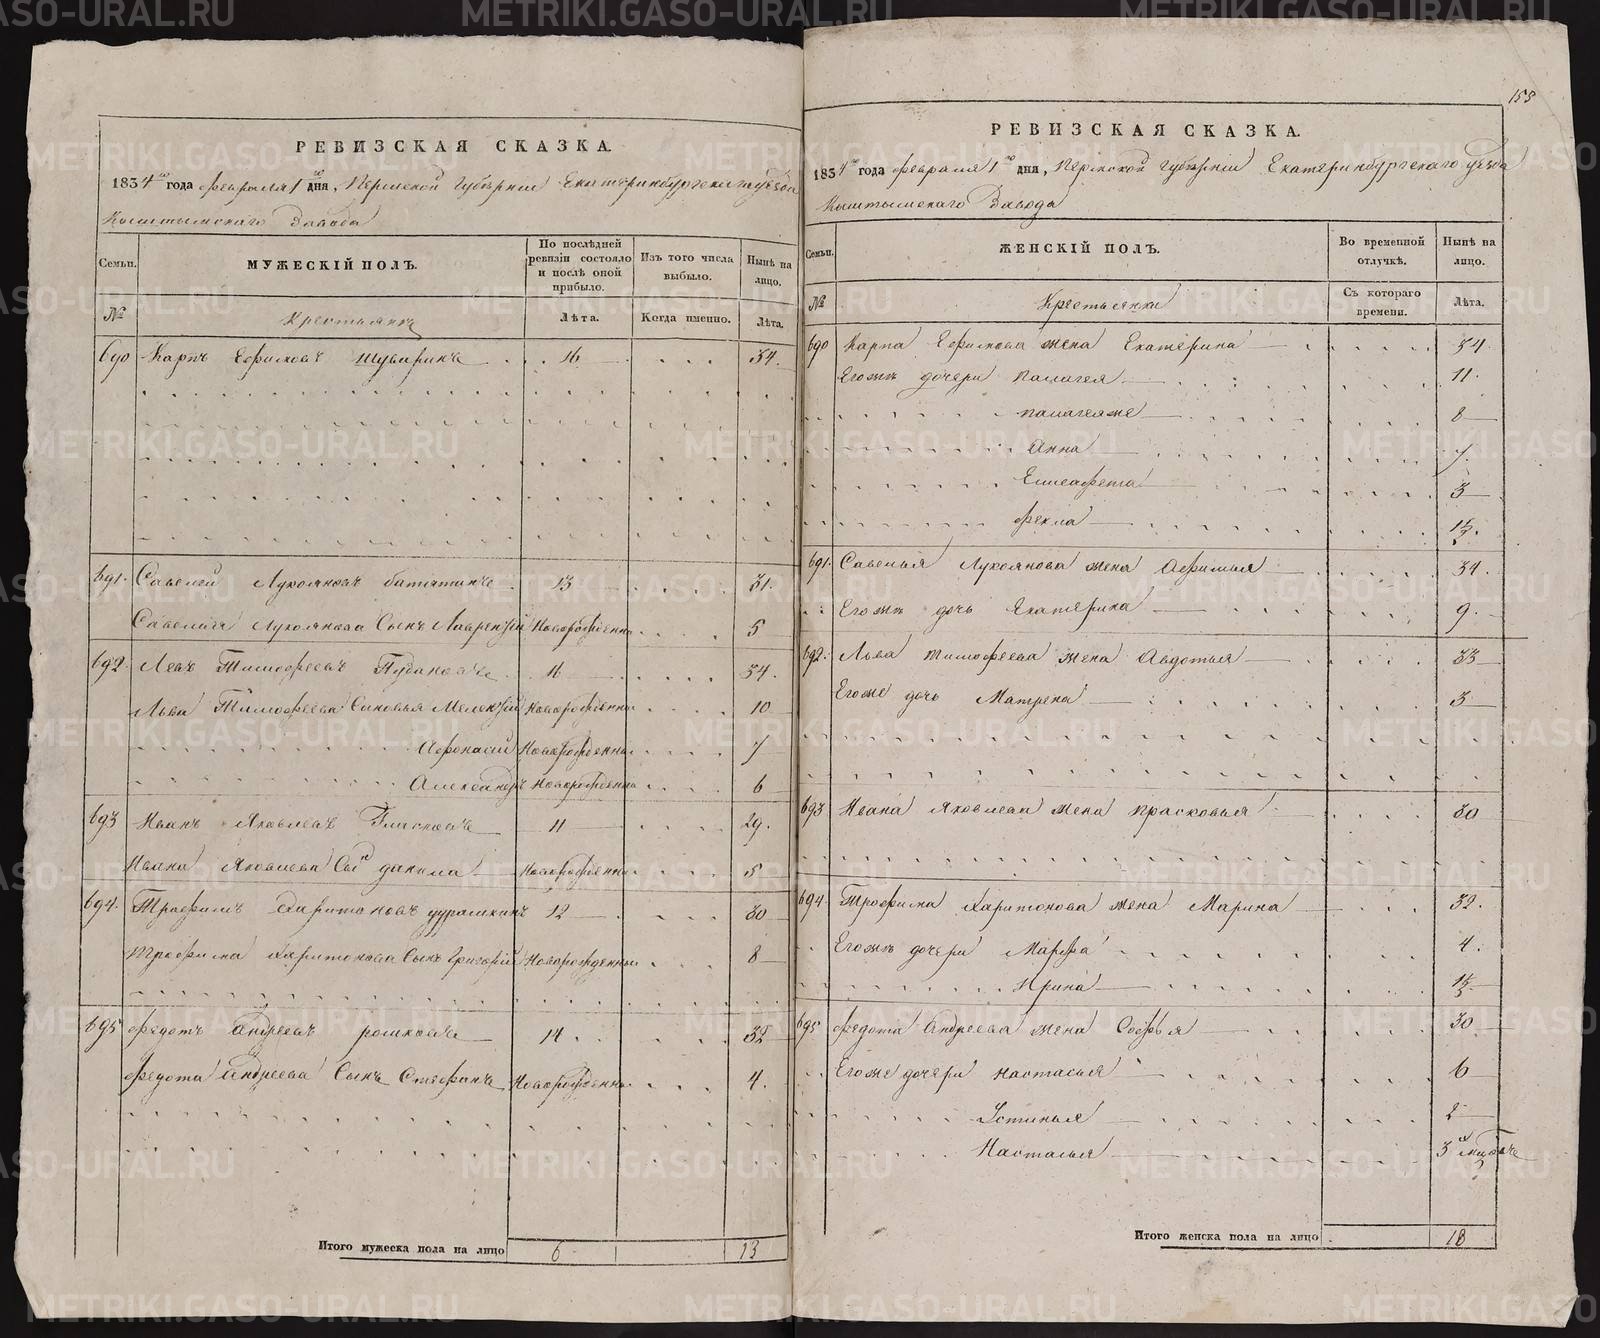 РЕВИЗСКАЯ СКАЗКА.
1834го года февраля 1го дня, Пермской Губернии Екатеринбургскаго уезда
Кыштымскаго Завода
Семьи.
МУЖЕСКІЙ ПОЛЪ.
По послѣдней ревизіи состояло и послѣ оной прибыло.
Изъ того числа выбыло.
Нынѣ на лицо.
№
Крестьянъ
Лѣта.
Когда именно.
Лѣта.
690 Карпъ Ефимовъ 16 34.
691. Савелей Лукояновъ 13 31.
Савелья Лукоянова Сынъ Лаврентій Новорожденны 5
692. Левъ Тимофеевъ 16 34.
Льва Тимофеева Сыновья Новорожденны 10
Афонасій Новорожденны 7
Александръ Новорожденны 6
693 Иванъ Яковлевъ 11 29.
Ивана Яковлева Сынъ данила Новорожденны 5
694. Трофимъ Харитоновъ 12 30
Трофима Харитонова Сынъ Григорій Новорожденны 8
695 Федотъ Андреевъ 14 32
Федота Андреева Сынъ Стефанъ Новорожденны 4.
Итого мужеска пола на лицо 6 13
155
РЕВИЗСКАЯ СКАЗКА.
1834го года февраля 1го дня, Пермской Губерніи Екатеринбургскаго уезда
Кыштымскаго Завода
Семьи.
ЖЕНСКІЙ ПОЛЪ.
Во временной отлучкѣ.
Нынѣ на лицо.
№
Крестьянки
Съ котораго времени.
Лѣта.
690 Карпа Ефимова жена Екатерина 34.
Егожъ дочери Палагея 11.
палагеяже 8
Анна 7.
Елисафета 3
Фекла
691. Савелья Лукоянова жена Афимья 34.
Егожъ дочь Екатерина 9.
692. Льва Тимофеева жена Авдотья 33
Егоже дочь Матрена 3
693 Ивана Яковлева жена Прасковья 30
694 Трофима Харитонова жена Марина 32.
Егожъ дочери Марфа 4.
Ирина
695 Федота Андреева жена Софья 30
Егоже дочери настасья 6
Устинья 2
Настасья 3
Итого женска пола на лицо 18
METRIKI.GASO-URAL.RU